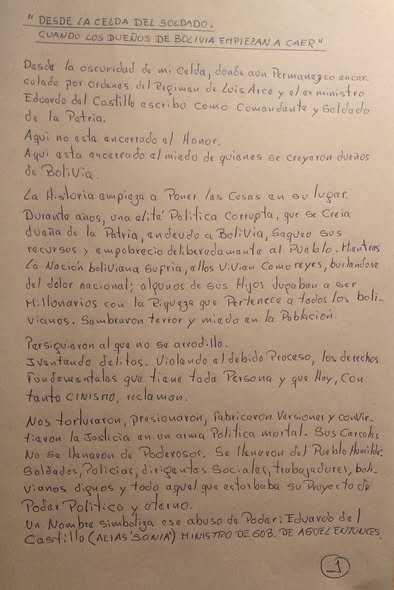 "DESDE LA CELDA DEL SOLDADO.
CUANDO LOS DUEÑOS DE BOLIVIA EMPIEZAN A CAER"
Desde la oscuridad de mi Celda, donde aun Permanezco encar
celado por ordenes del Regimen de Luis Arce y el ex ministro
Eduardo del Castillo escribo como Comandante y Soldado
de la Patria.
Aqui no esta encerrado el Honor.
Aqui esta encerrado el miedo de quienes se creyeron dueños
de Bolivia.
La Historia empieza a Poner las Cosas en su lugar.
Durante años, una elite Politica Corrupta, que se Creia
dueña de la Patria, endeudo a Bolivia, Saqueo sus
recursos y empobrecio deliberadamente al Pueblo. Mientras
La Nación boliviana Sufria, ellos Vivian Como reyes, burlandose
del dolor nacional; algunos de sus Hijos Jugaban a ser
Millonarios con la Riqueza que Pertenece a todos los boli-
vianos. Sembraron terror y miedo en la Población.
Persiguieron al que no se arrodillo.
Inventando delitos. Violando el debido Proceso, los derechos
Fundamentales que tiene toda Persona y que Hoy, Con
tanto CINISMO, reclaman.
Nos torturaron, presionaron, fabricaron Versiones y convir-
tieron la Justicia en un arma Politica mortal. Sus Carceles
No se llenaron de Poderosos. Se llenaron del Pueblo Humilde,
Soldados, Policias, dirigentes Sociales, trabajadores, boli-
vianos dignos y todo aquel que estorbaba su Proyecto de
Poder Politico y eterno.
Un Nombre simboliza ese abuso de Poder: Eduardo del
Castillo (ALIAS 'SONIA') MINISTRO DE GOB. DE AQUEL ENTONCES.
1